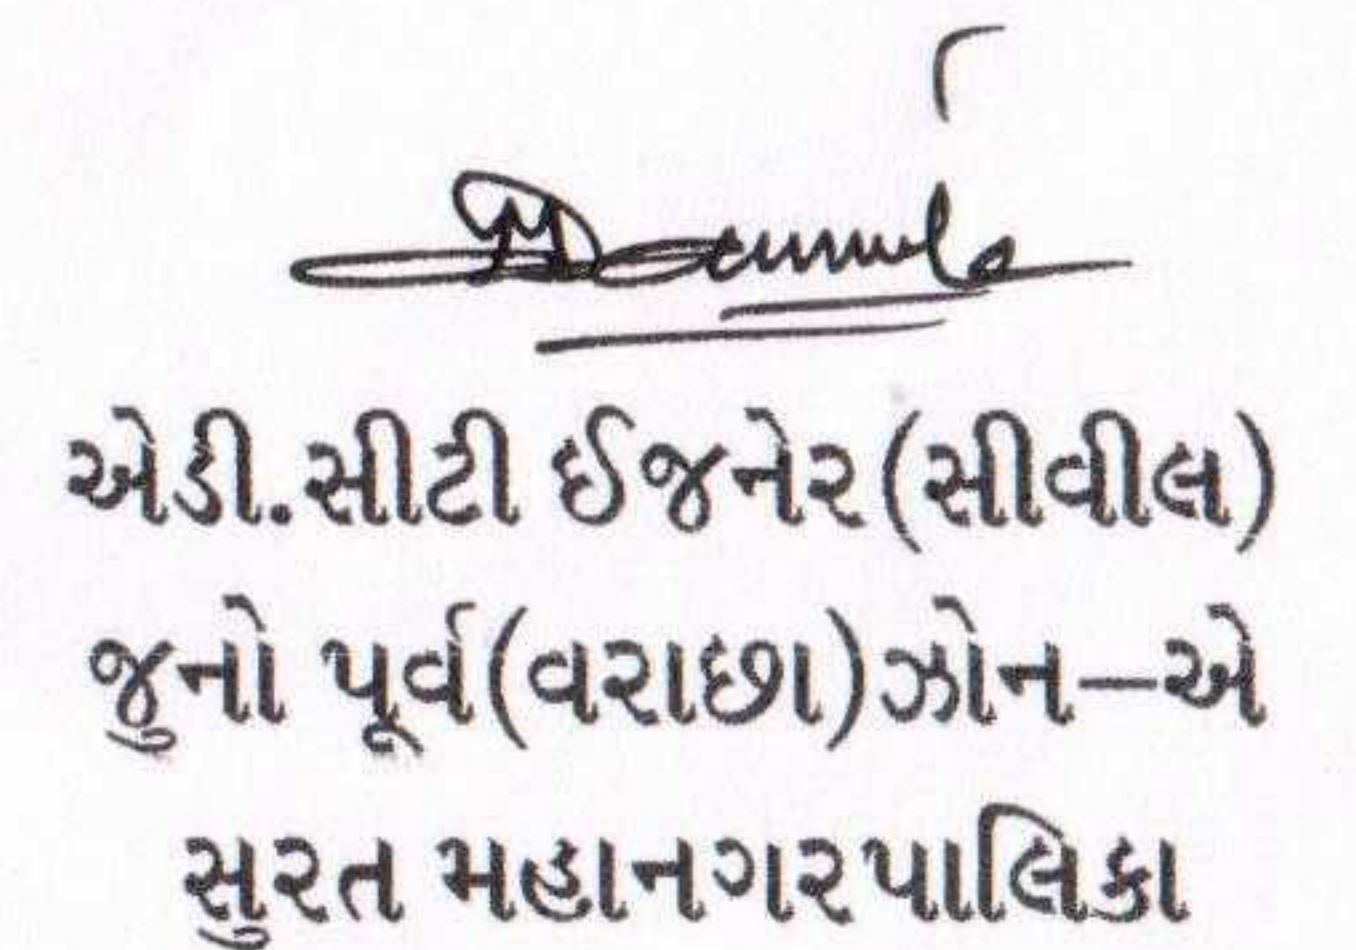 એડી.સીટી ઈજનેર(સીવીલ)
જુનો પૂર્વ(વરાછા)ઝોન–એ
સુરત મહાનગરપાલિકા